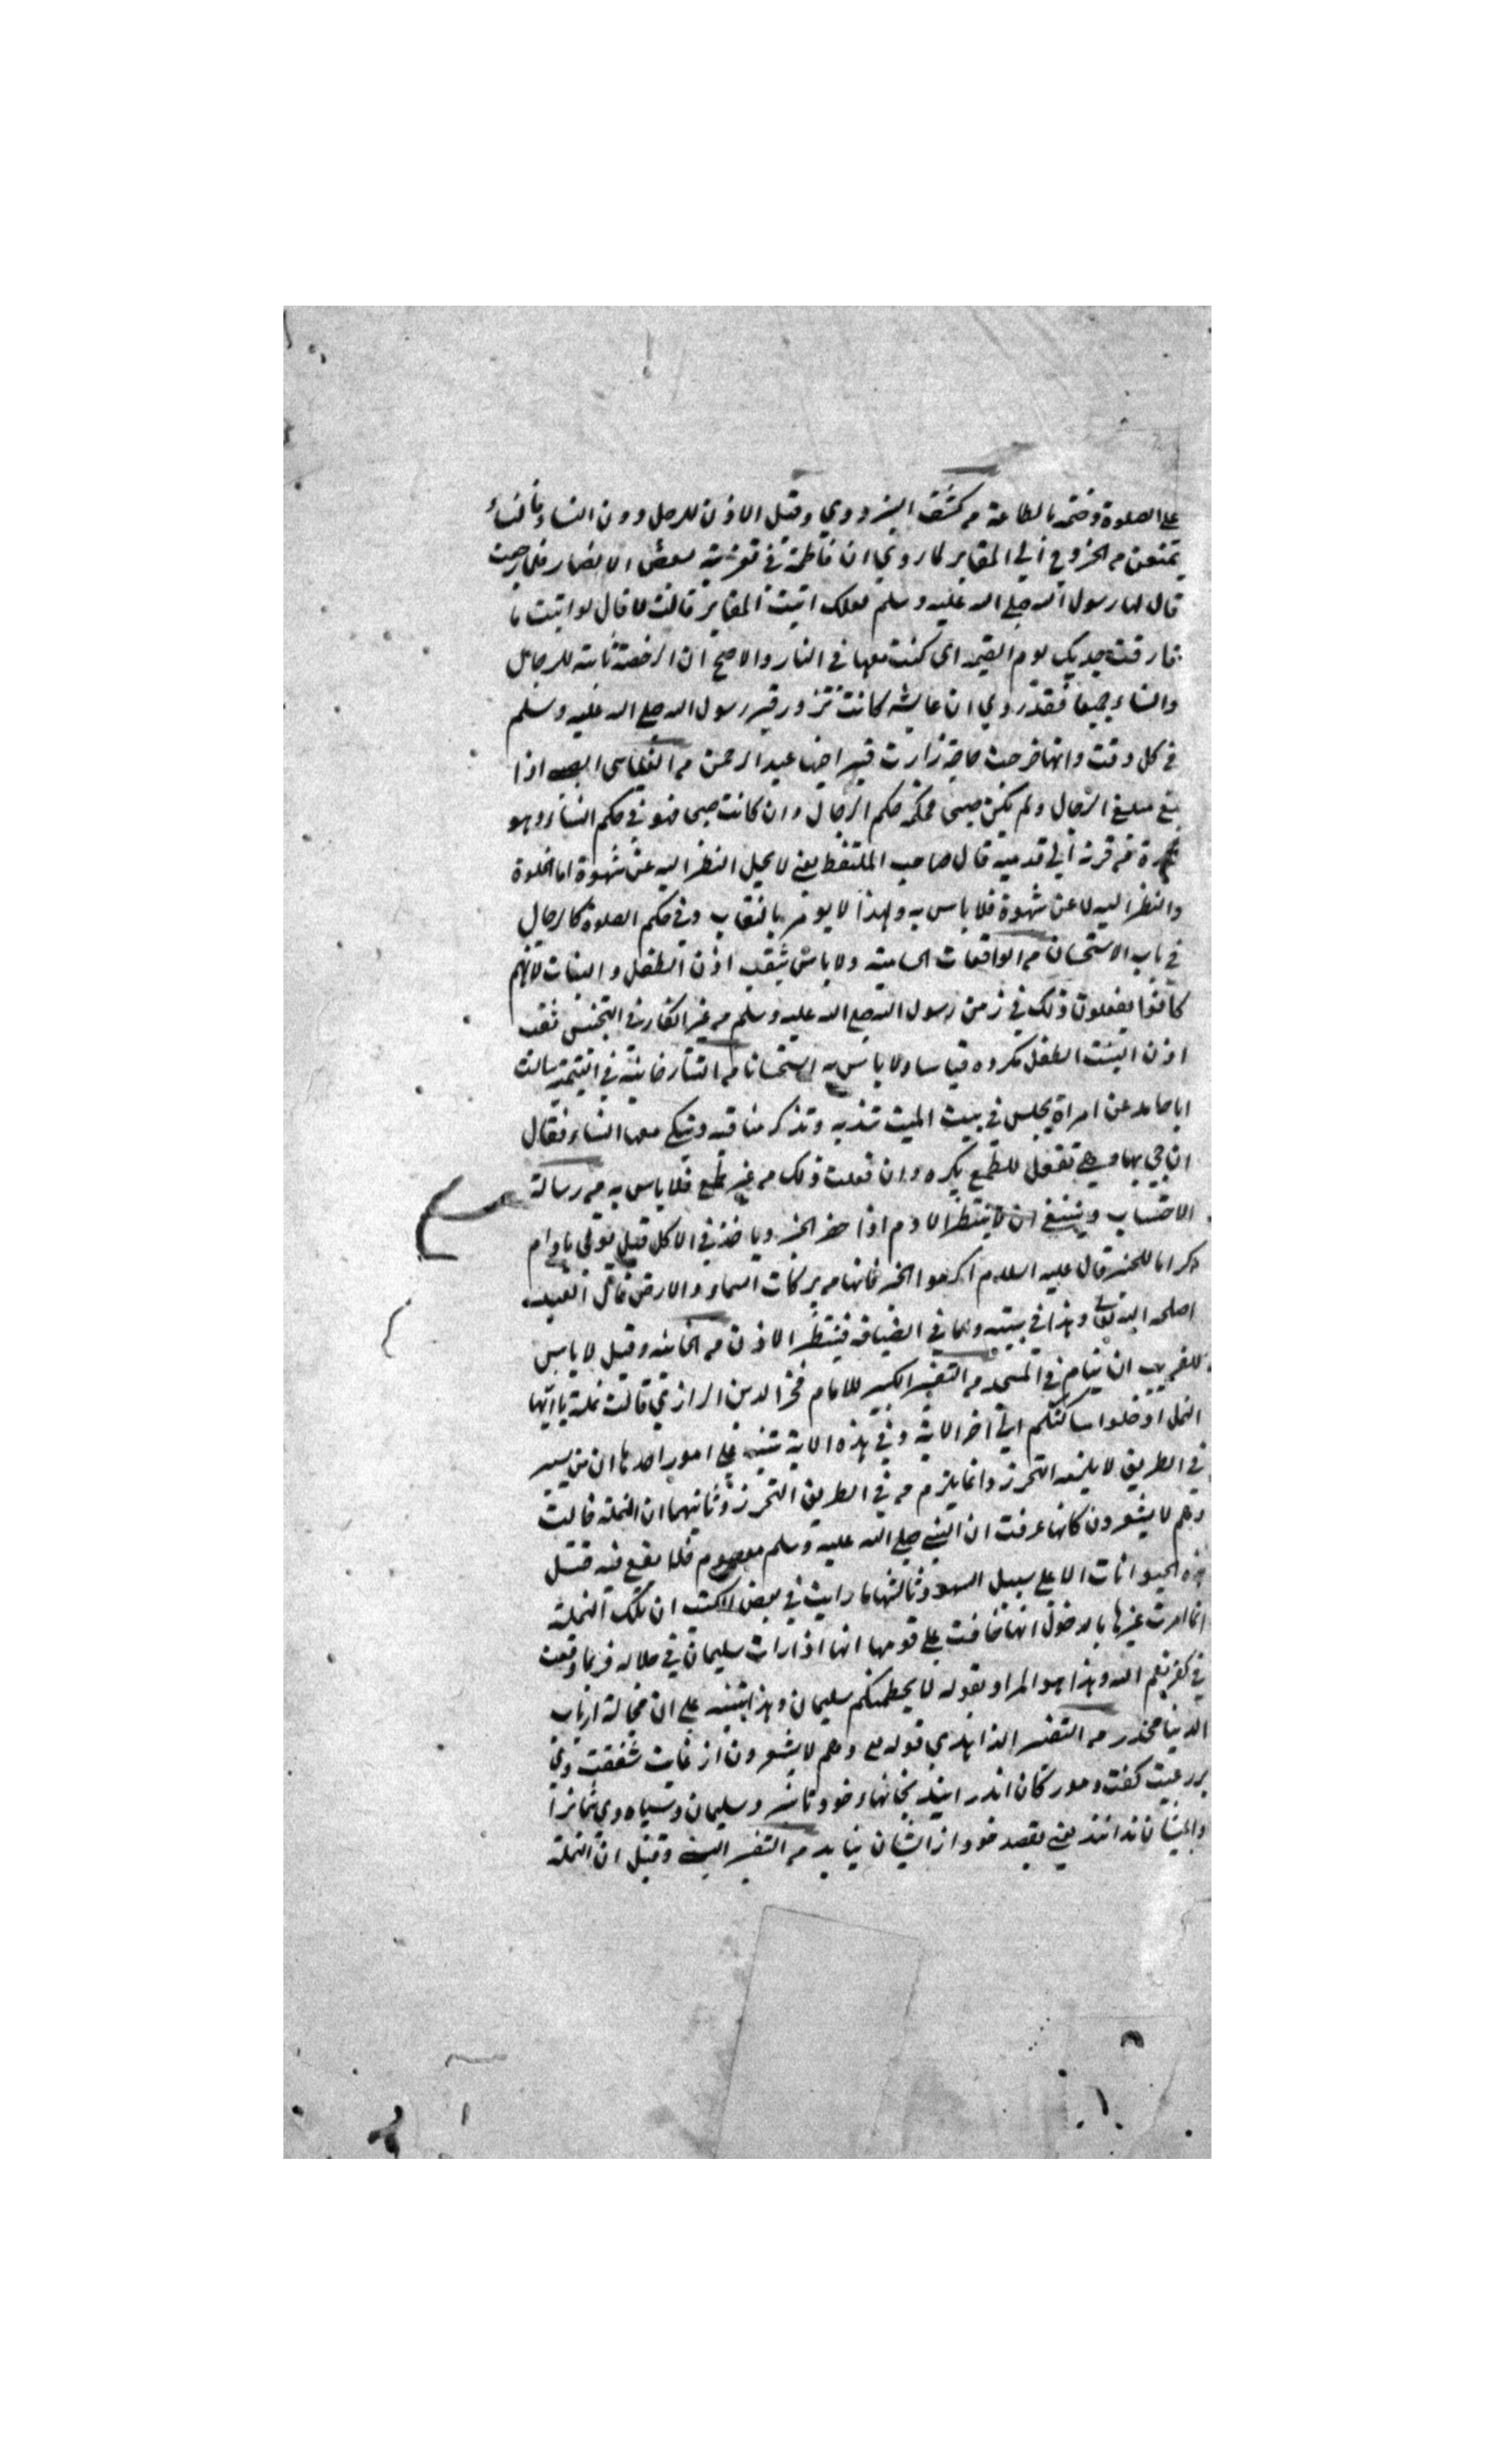 على الصلوة وختمه بالطاعة من كشف البزدوي وقيل الاذن للرجل دون النساء والنساء
يمنعن من الخروج الى المقابر لما روي ان فاطمة في تعزية بعض الانصار فلما رجعت
قال لها رسول الله صلى الله عليه وسلم لعلك اتيت المقابر قالت لا قال لو اتيت ما
فارقت جدتك يوم القيمة اى كنت معها في النار والاصح ان الرخصة ثابتة للرجال
والنساء جميعا فقد روي ان عايشه كانت تزور قبر رسول الله صلى الله عليه وسلم
في كل وقت وانها خرجت حاجة زارت قبر اخيها عبد الرحمن من الغياثى اذا
بلغ مبلغ الرجال ولم يكن صبيح فحكمه حكم الرجال وان كانت صبيحا فهو في حكم النساء وهو
عورة من قرنه الى قدميه قال صاحب الملتقط يعني لا يحل النظر اليه عن شهوة اما الخلوة
والنظر اليه لا عن شهوة فلا باس به ولهذا لا يومر بالنقاب وفي حكم الصلوة كالرجال
في باب الاستحسان من الواقعات الحسامية ولا باس بثقب اذن الطفل والبنات لانهم
كانوا يفعلون ذلك في زمن رسول الله صلى الله عليه وسلم من غير انكار في التجنيس ثقب
اذن البنت الطفل مكروه قياسا ولا باس به استحسانا من التتارخانية في اليتيمة سالت
ابا حامد عن امراة يجلس في بيت الميت تندبه وتذكر مناقبه وتبكى معها النساء فقال
ان جي بها وهي تفعل للطمع يكره وان فعلت ذلك من غير طمع فلا باس به من رسالة
الاحتساب وينبغي ان لا ينتظر الادام اذا حضر الخبز وياخذ في الاكل قبل توتى بادام
اكراما للخبز قال عليه السلام اكرموا الخبز فانها من بركات السماء والارض قال العبد
اصلحه الله تعالى وهذا في بيته واما في الضيافة فينتظر الاذن من الخانيه وقيل لا باس
للغريب ان ينام في المسجد من التفسير الكبير للامام فخر الدين الرازي قالت نملة يا ايها
النمل ادخلوا مساكنكم الى اخر الاية وفي هذه الاية تنبيه على امور احدها ان من يسير
في الطريق لا يلزمه التحرز وانما يلزم من في الطريق التحرز وثانيهما ان النملة قالت
وهم لا يشعرون كانها عرفت ان النبي صلى الله عليه وسلم معصوم فلا يقع فيه قتل
هذه الحيوانات الا على سبيل السهو وثالثها ما رايت في بعض الكتب ان تلك النملة
انما امرت غيرها بالدخول انها خافت على قومها انها اذا رات سليمان في جلاله فربما وقعت
في كفر نعم الله وهذا هو المراد بقوله لا يحطمنكم سليمان وهذا تنبيه على ان مجالسة ارباب
الدنيا محذور من التفسير الزاهدي قوله تع وهم لا يشعرون از غايت شفقت وي
بر رعيت كفت ومورچكان اندر ايند بخانهاء خود تا نه سليمان وسپاه وي شما را
وايشان ندانند يعني بقصد خود از ايشان نيايد من التفسير وقيل ان النملة